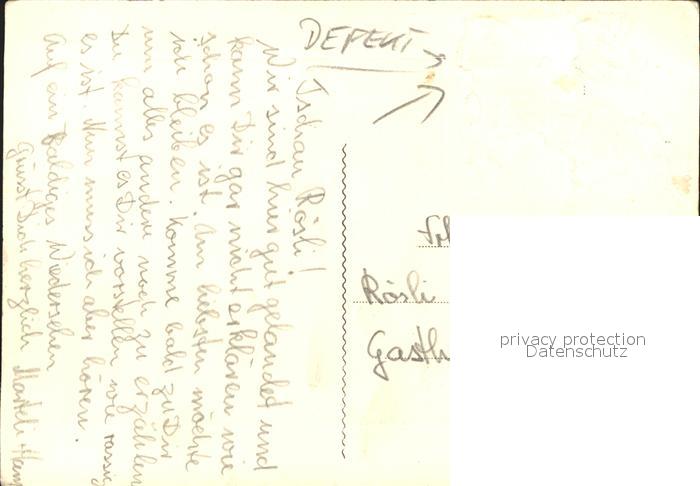 DEFEKT
Tschau Rösli!
Wir sind hier gut gelandet und
kann Dir gar nicht erklären wie
schön es ist. Am liebsten möchte
ich bleiben. Komme bald zu Dir
um alles andere noch zu erzählen
Du kannst es Dir vorstellen wie rassig
es ist. Nun muss ich aber hören.
Auf ein baldiges Wiedersehen
Grüsst Dich herzlich
Rösli
Gasth
privacy protection
Datenschutz